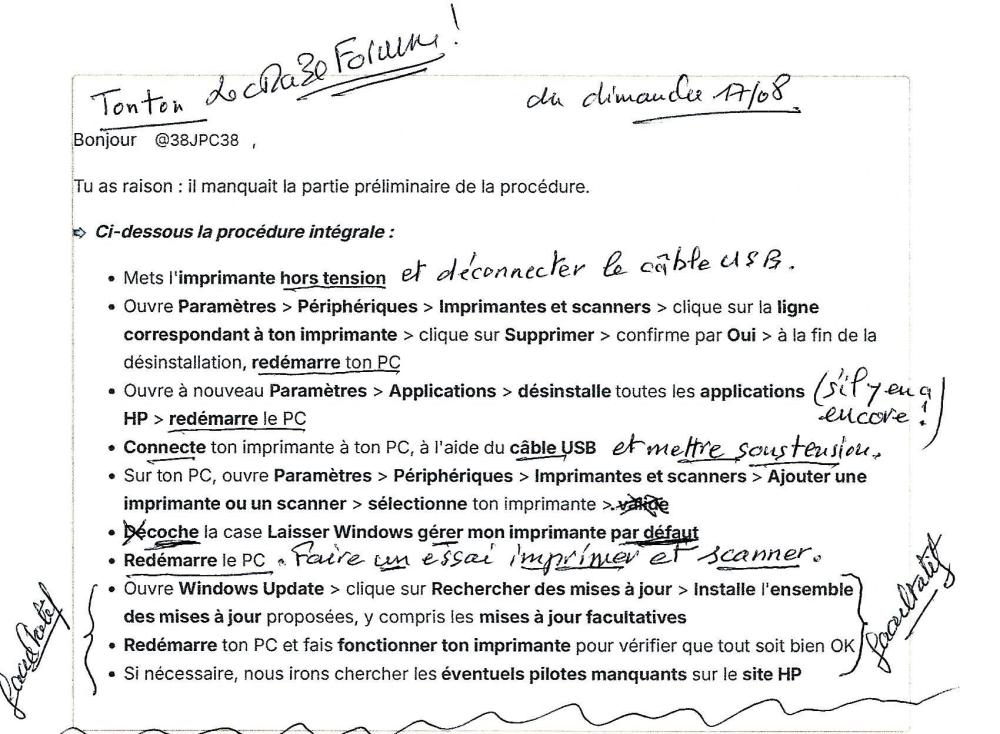 Tonton Forum !
du dimanche 17/08.
Bonjour @38JPC38 ,
Tu as raison : il manquait la partie préliminaire de la procédure.
⇨ Ci-dessous la procédure intégrale :
• Mets l'imprimante hors tension et déconnecter le câble USB.
• Ouvre Paramètres > Périphériques > Imprimantes et scanners > clique sur la ligne
correspondant à ton imprimante > clique sur Supprimer > confirme par Oui > à la fin de la
désinstallation, redémarre ton PC
• Ouvre à nouveau Paramètres > Applications > désinstalle toutes les applications (s'il y en a
HP > redémarre le PC encore !)
• Connecte ton imprimante à ton PC, à l'aide du câble USB et mettre sous tension.
• Sur ton PC, ouvre Paramètres > Périphériques > Imprimantes et scanners > Ajouter une
imprimante ou un scanner > sélectionne ton imprimante > valide
• Décoche la case Laisser Windows gérer mon imprimante par défaut
• Redémarre le PC. Faire un essai imprimer et scanner.
• Ouvre Windows Update > clique sur Rechercher des mises à jour > Installe l'ensemble
des mises à jour proposées, y compris les mises à jour facultatives
• Redémarre ton PC et fais fonctionner ton imprimante pour vérifier que tout soit bien OK
• Si nécessaire, nous irons chercher les éventuels pilotes manquants sur le site HP
facultatif
facultatif